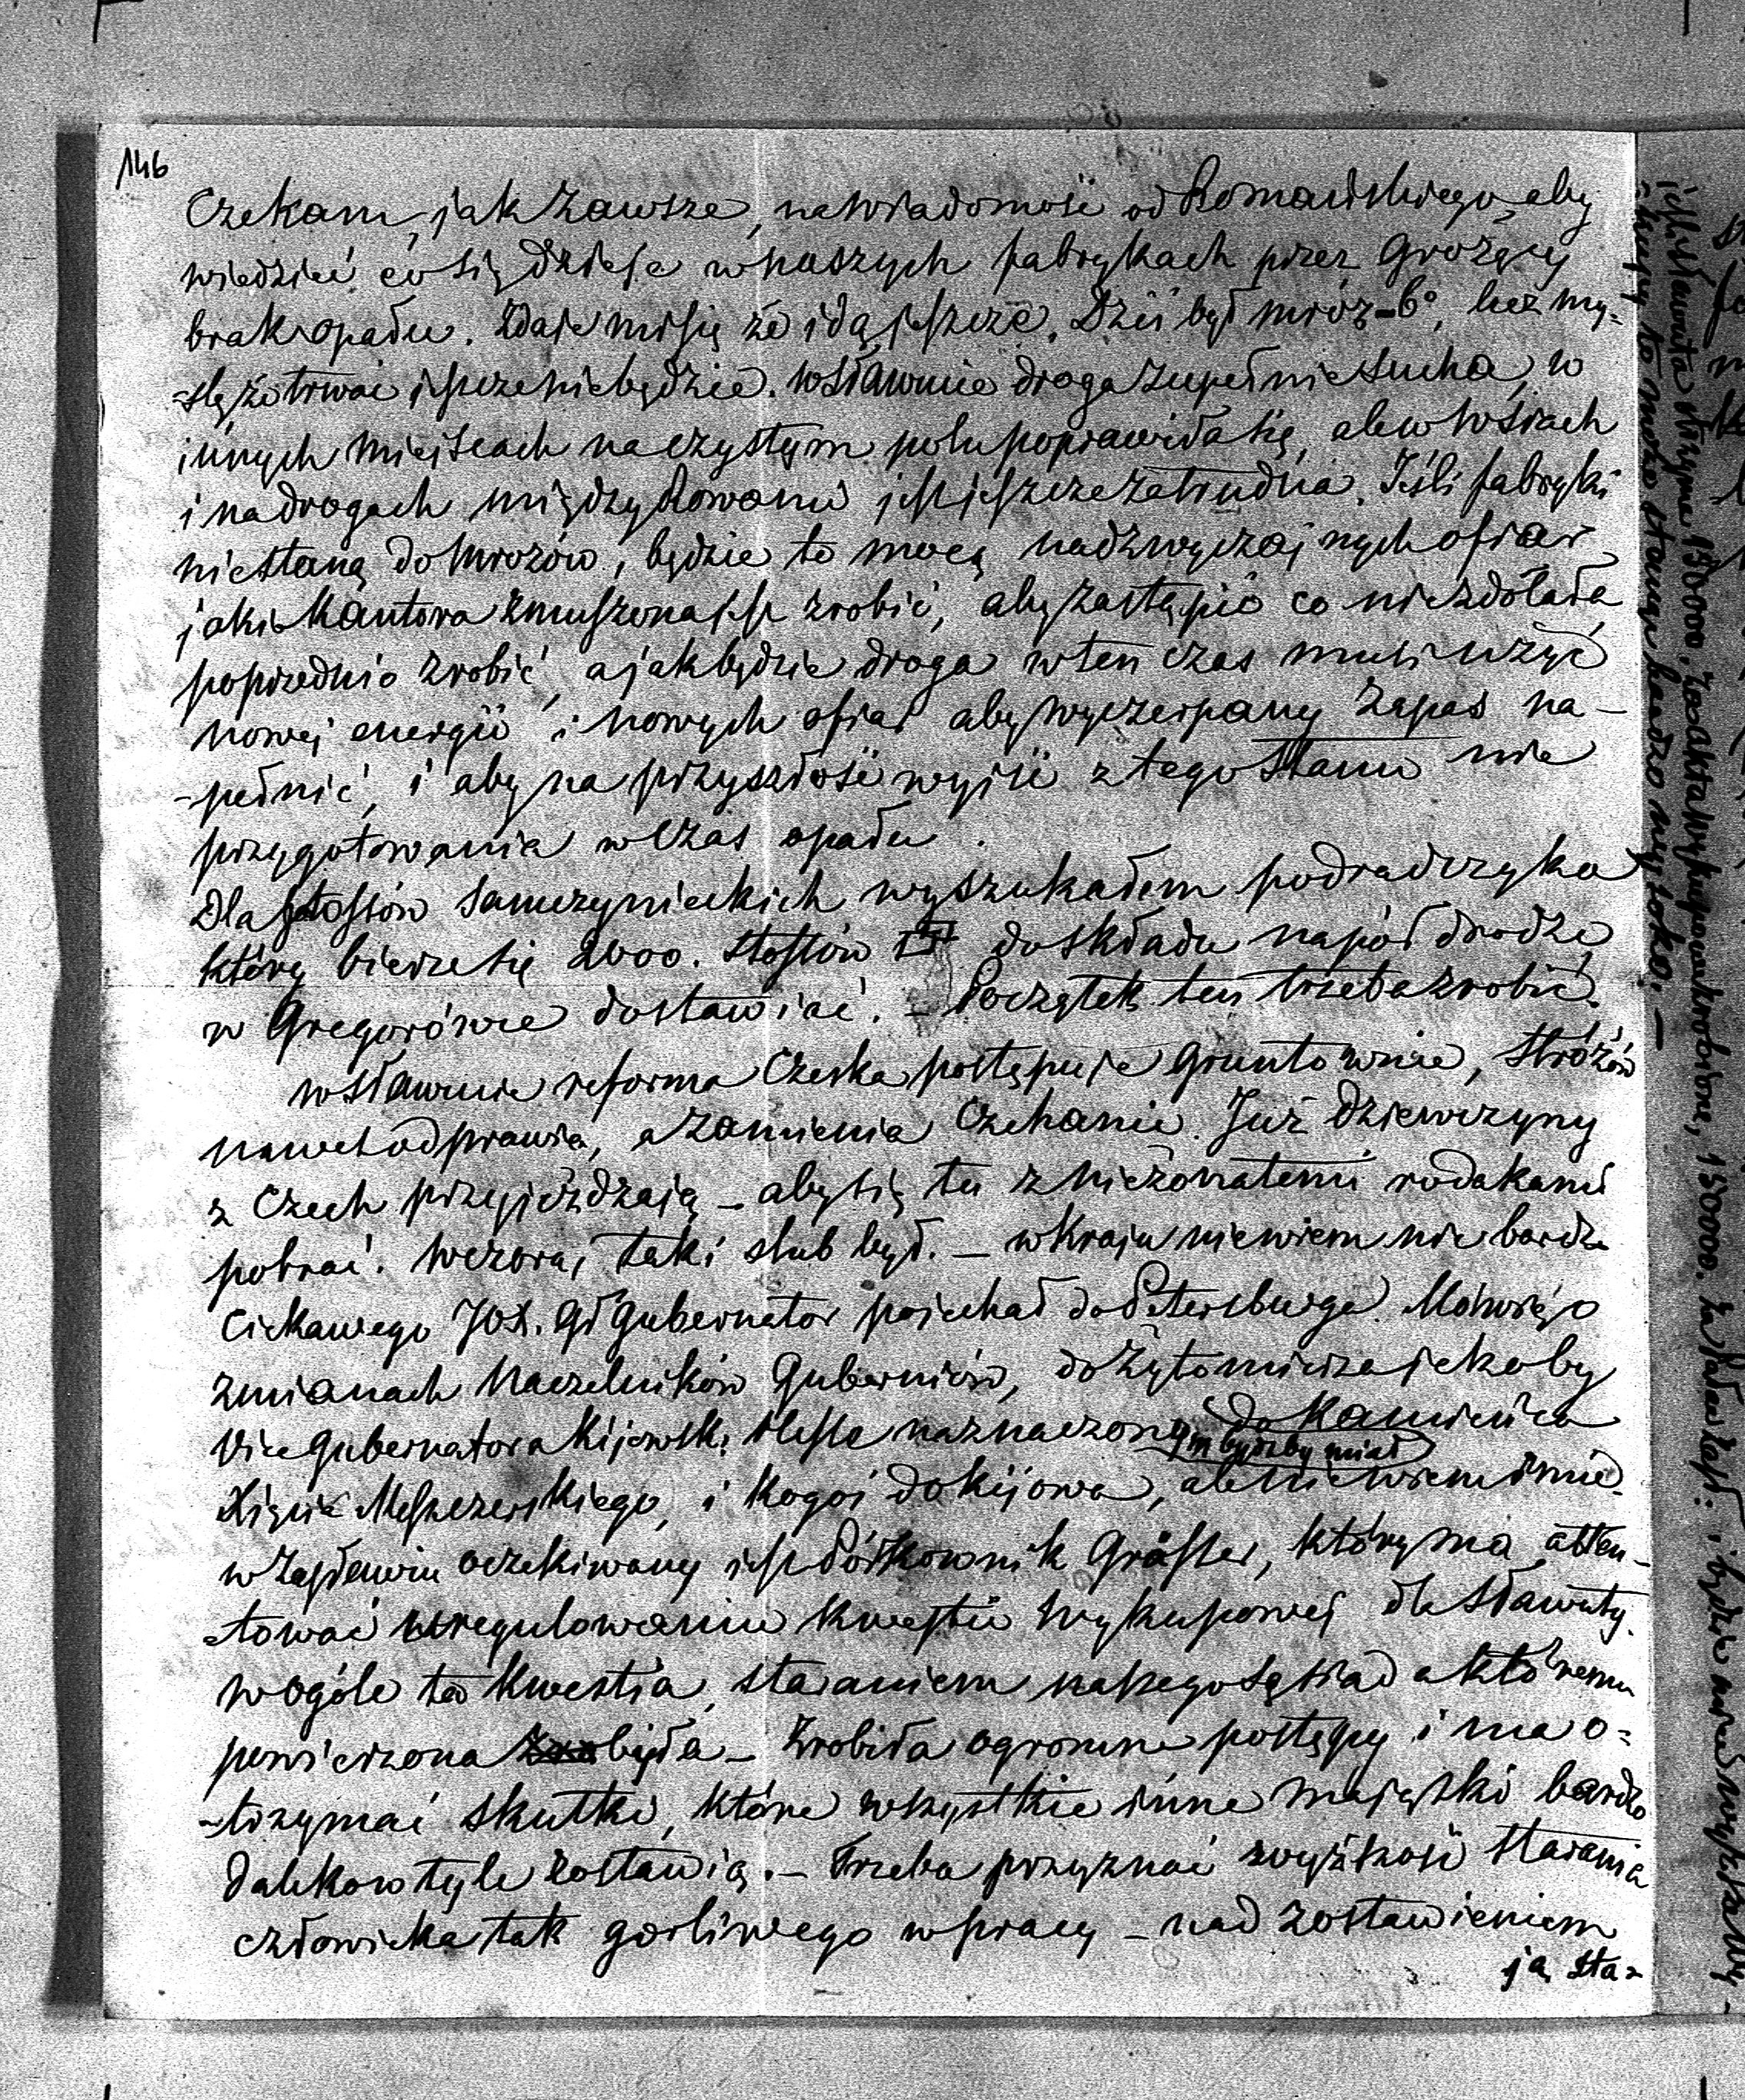 146
Czekam, jak zawsze, na wiadomość od Romańskiego, aby
wiedzieć co się dzieje w naszych fabrykach przez grożący
brak opału. Zdaje mi się że idą jeszcze. Dziś był mróz -6°, lecz my-
-slę że trwać jeszcze nie będzie. w Sławucie droga zupełnie sucha, w
innych miejscach na czystym polu poprawiła się, ale w wsiach
i na drogach między Rowami jest jeszcze zatrudna. Jeśli fabryki
nie staną do mrozów, będzie to mocą nadzwyczajnych ofiar
jakie Kantora zmuszona jest zrobić, aby zastąpić co nie zdołała
poprzednio zrobić, a jak będzie droga wten czas musi użyć
nowej energii i nowych ofiar aby wyczerpany zapas na-
-pełnić, i aby na przyszłość wyjść z tego stanu nie
przygotowania w czas opału.
Dla stosów Samczynieckich wyszukałem podradczyka
który bierze się 2000. stosów do składu na pół drodze
w Gregorówce dostawić. - Początek ten trzeba zrobić.
w Sławucie reforma Czeska postępuje gruntownie, Stróżów
nawet odprawia, a zamienia Czechami. Już dziewczyny
z Czech przyjeżdzają - aby się tu z nieżonatemi rodakami
pobrać. Wczoraj taki slub był. - w Kraju niewiem nic bardzo
Ciekawego Jen. Gł Gubernator pojechał do Petersburga. Mówią o
zmianach Naczelników Guberniów, do Żytomierza jakoby
Vice Gubernatora Kijowski Hesse naznaczonym byćby miał do Kamieńca
Xięcia Meszczerskiego, i kogoś do Kijowa, ale niewiem imie.
w Zasławiu oczekiwany jest Półkownik Grässer, który ma atten-
-tować uregulowaniu kwestii wykupowej dla Sławuty.
w ogóle ta kwestia, staraniem naszego Sąsiada któremu
powierzona była - zrobiła ogromne postępy i ma o-
-trzymać skutki, które wszystkie inne majątki bardzo
daleko w tyle zostawią. - Trzeba przyznać wyższość starania
człowieka tak gorliwego w pracy - nad zostawieniem
ją sta-
jeśli Sławuta otrzyma 150000. za akta wykupowe zrobione, 150000. za
to można stanąć bardzo wysoko. -